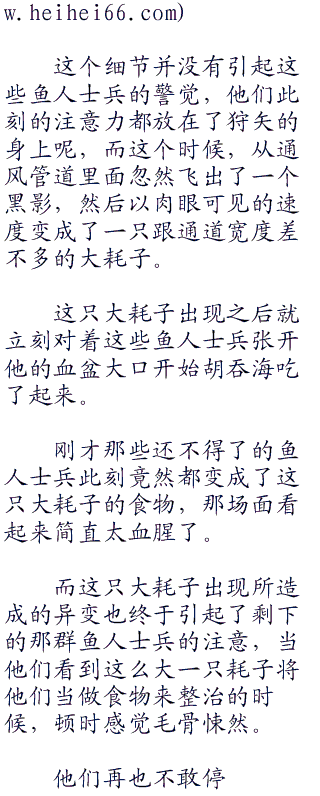 w.heihei66.com)
这个细节并没有引起这
些鱼人士兵的警觉，他们此
刻的注意力都放在了狩矢的
身上呢，而这个时候，从通
风管道里面忽然飞出了一个
黑影，然后以肉眼可见的速
度变成了一只跟通道宽度差
不多的大耗子。
这只大耗子出现之后就
立刻对着这些鱼人士兵张开
他的血盆大口开始胡吞海吃
了起来。
刚才那些还不得了的鱼
人士兵此刻竟然都变成了这
只大耗子的食物，那场面看
起来简直太血腥了。
而这只大耗子出现所造
成的异变也终于引起了剩下
的那群鱼人士兵的注意，当
他们看到这么大一只耗子将
他们当做食物来整治的时
候，顿时感觉毛骨悚然。
他们再也不敢停